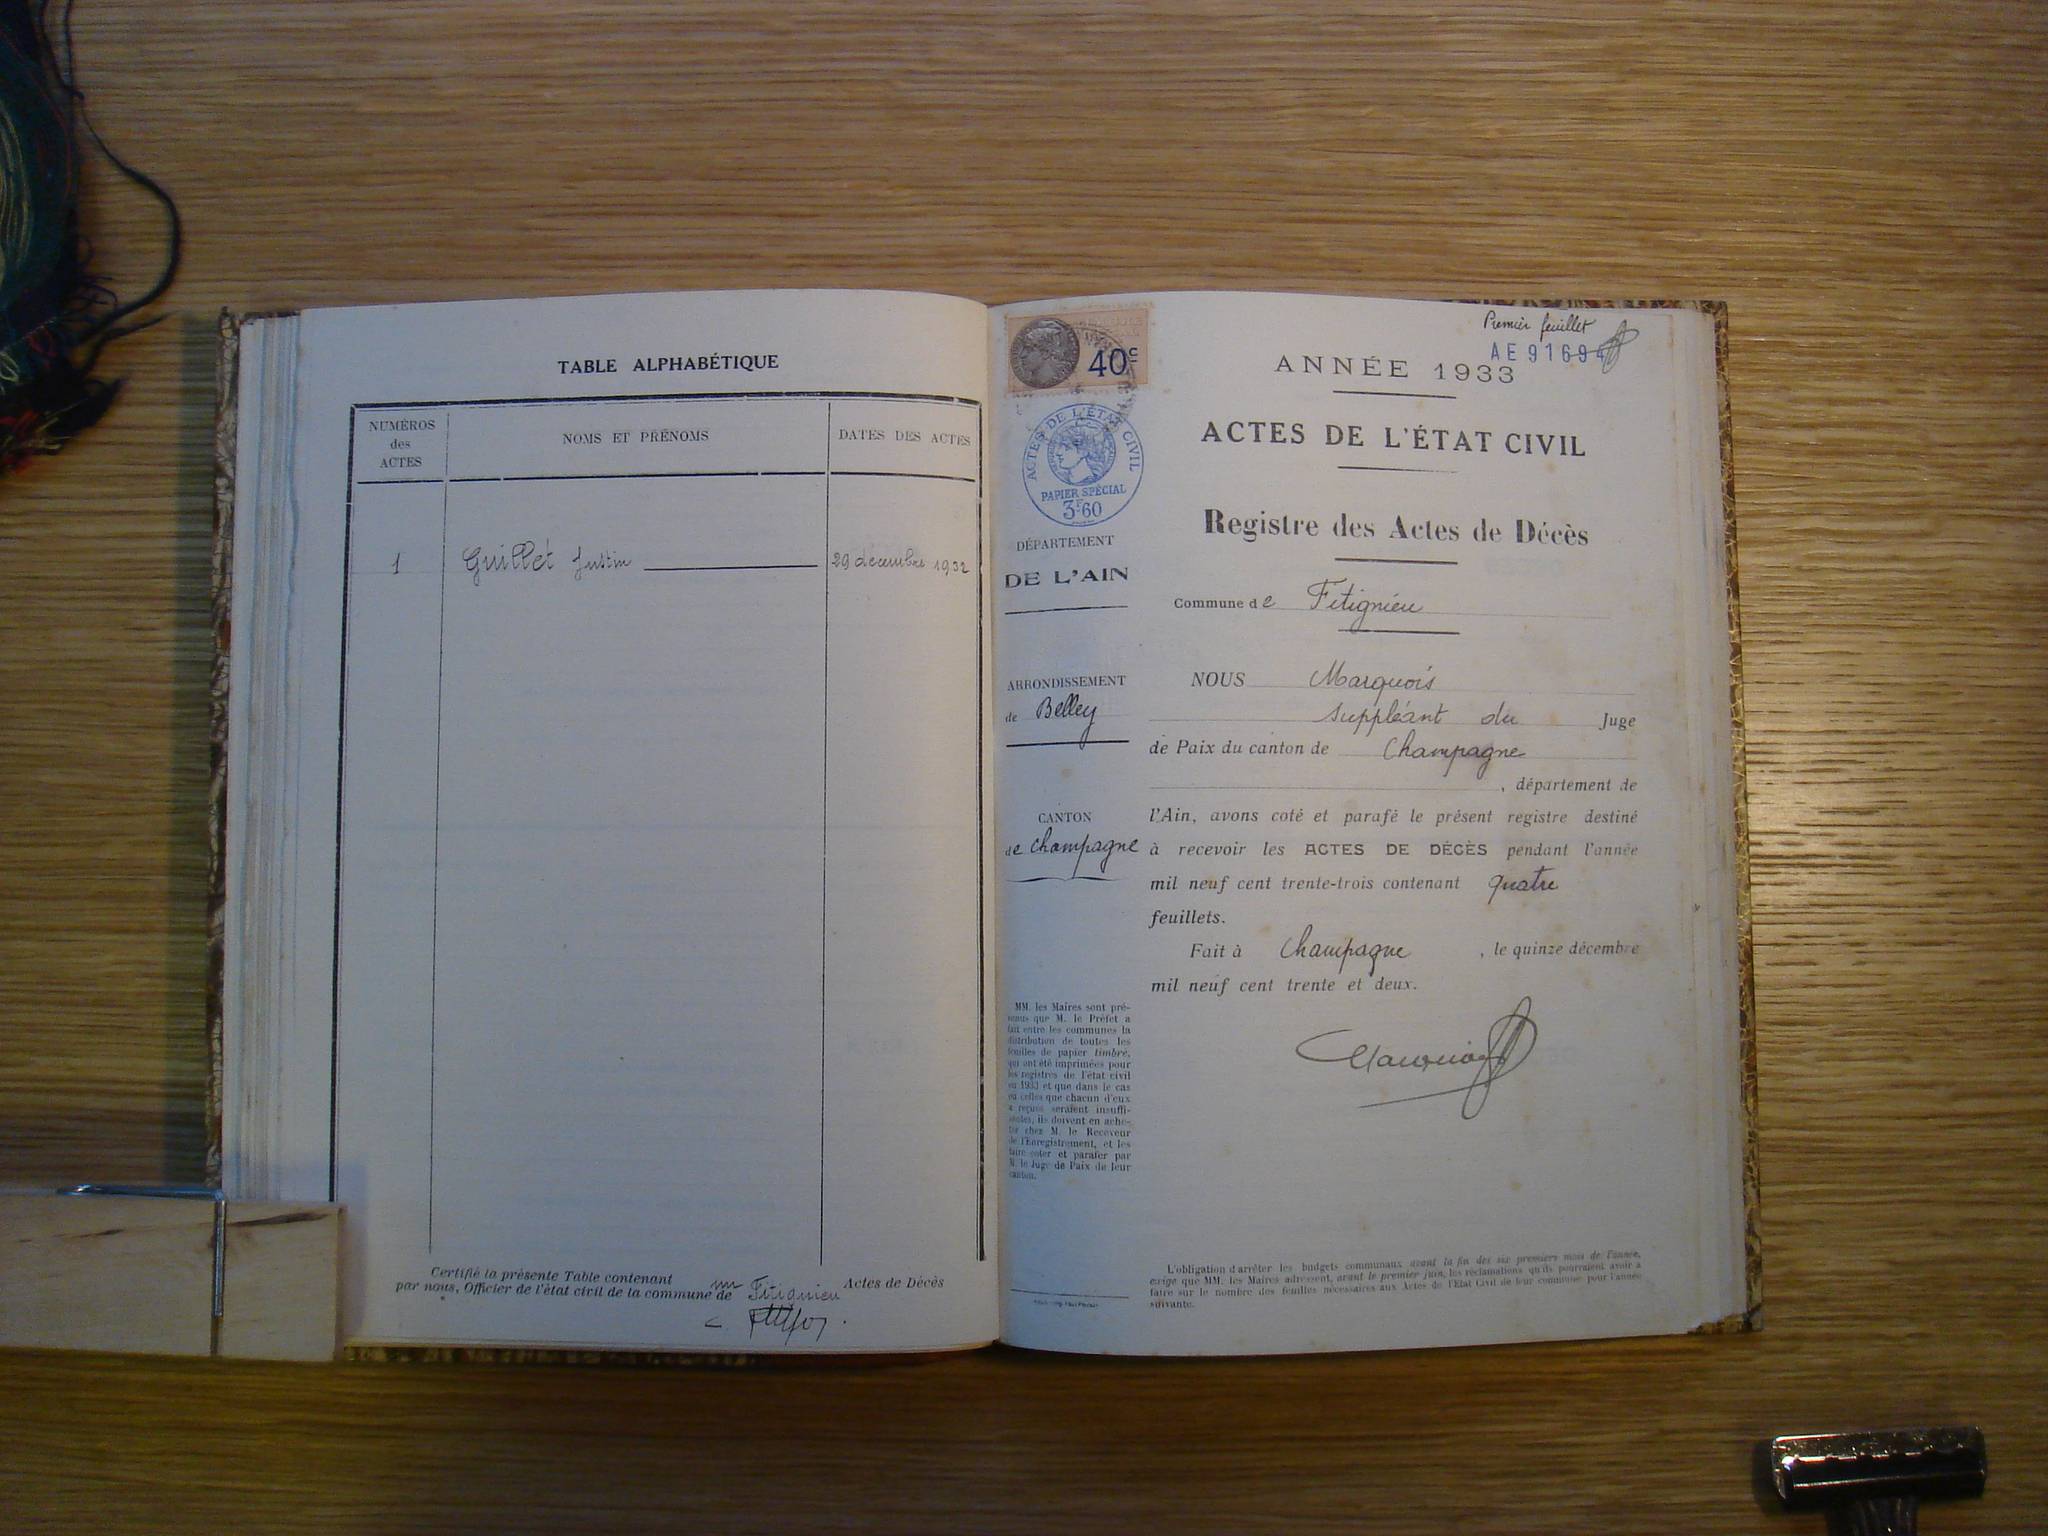 TABLE ALPHABÉTIQUE
NUMÉROS
des
ACTES
NOMS ET PRÉNOMS
DATES DES ACTES
1
Guillet Justin
29 décembre 1932
Certifié la présente Table contenant un Actes de Décès
par nous, Officier de l'état civil de la commune de Fitignieu
Premier feuillet
AE 91694
40c
ACTES DE L'ÉTAT CIVIL
PAPIER SPÉCIAL
3F60
DÉPARTEMENT
DE L'AIN
ARRONDISSEMENT
de Belley
CANTON
de Champagne
MM. les Maires sont pré-
venus que M. le Préfet a
fait entre les communes la
distribution de toutes les
feuilles de papier timbré,
qui ont été imprimées pour
les registres de l'état civil
en 1933 et que dans le cas
où celles que chacun d'eux
a reçues seraient insuffi-
santes, ils doivent en ache-
ter chez M. le Receveur
de l'Enregistrement, et les
faire coter et parafer par
M. le Juge de Paix de leur
canton.
ANNÉE 1933
ACTES DE L'ÉTAT CIVIL
Registre des Actes de Décès
Commune de Fitignieu
NOUS Marquois
suppléant du Juge
de Paix du canton de Champagne
, département de
l'Ain, avons coté et parafé le présent registre destiné
à recevoir les ACTES DE DÉCÈS pendant l'année
mil neuf cent trente-trois contenant quatre
feuillets.
Fait à Champagne , le quinze décembre
mil neuf cent trente et deux.
L'obligation d'arrêter les budgets communaux avant la fin des six premiers mois de l'année,
exige que MM. les Maires adressent, avant le premier juin, les réclamations qu'ils pourraient avoir à
faire sur le nombre des feuilles nécessaires aux Actes de l'Etat Civil de leur commune pour l'année
suivante.